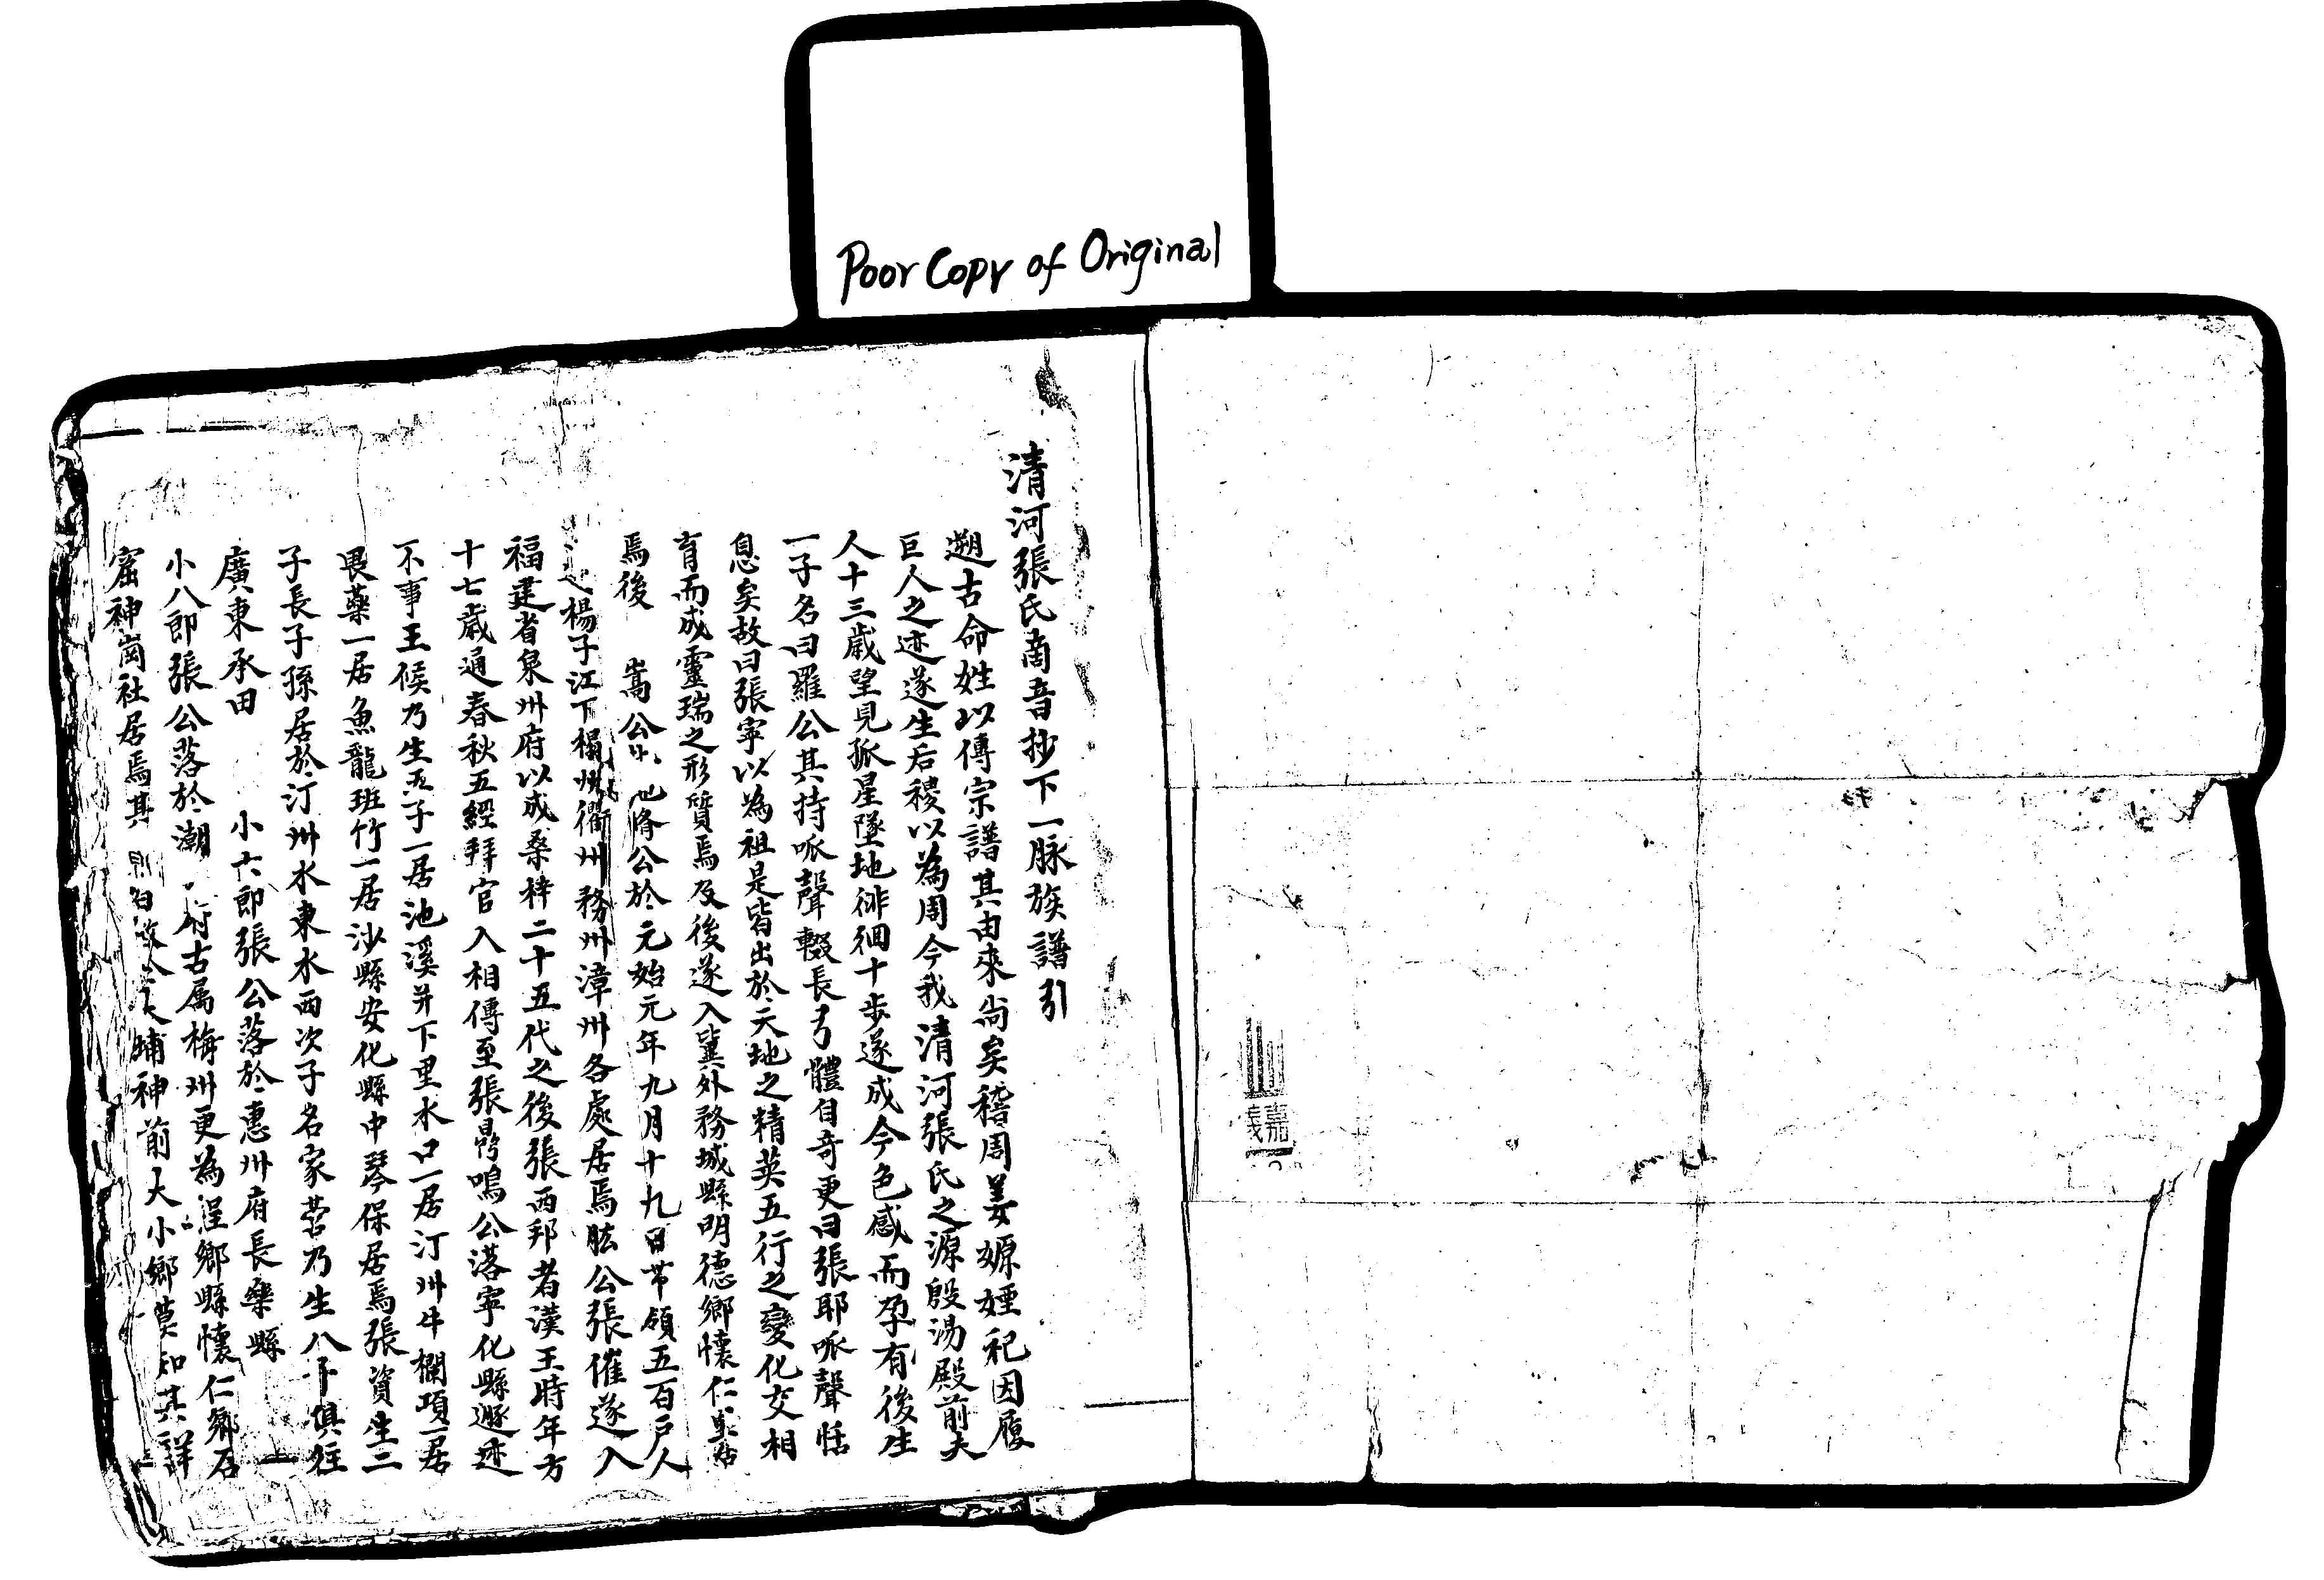 Poor Copy of Original
清河張氏商音抄下一脉族譜引
遡古命姓以傳宗譜其由來尚矣稽周姜嫄煙祀因履
巨人之迹遂生后稷以為周今我清河張氏之源殷湯殿前夫
人十三歲望見孤星墜地徘徊十步遂成今色感而孕有後生
一子名曰羅公其持哌聲輟長弓體自奇更曰張耶哌聲恬
息矣故曰張寧以為祖是皆出於天地之精英五行之變化交相
育而成靈瑞之形質焉及後遂入冀外務城縣明德鄉懷仁里居
焉後 嵩公 公於元始元年九月十九日带領五百户人
楊子江下福州衢州務州漳州各處居焉肱公張催遂入
福建省泉州府以成桑梓二十五代之後張西邦者漢王時年方
十七歲通春秋五經拜官入相傳至張鹗鳴公落寧化縣遯迹
不事王候乃生五子一居池溪并下里水口一居汀州牛欄項一居
畏藥一居魚龍班竹一居沙縣安化縣中琴保居焉張資生二
子長子孫居於汀州水東水西次子名家荅乃生八子俱往
廣東承田 小六郎張公落於惠州府長樂縣
小八郎張公落於潮 府古属梅州更為程鄉縣懷仁鄉石
窟神崗社居焉其 埔神前大小鄉莫知其詳
嘉義